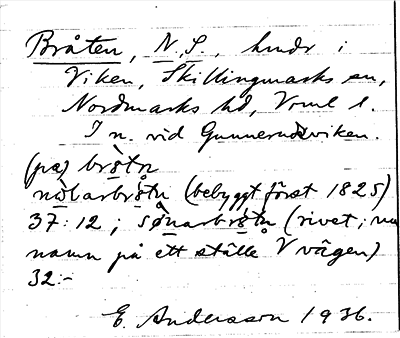 Bråten, N. S., hmdr i
Viken, Skillingmarks sn,
Nordmarks hd, Vrml l.
I n. vid Gunnerudsviken.
(pa) brötn
nolarbrötn (bebyggt först 1825)
37:12; sønarbrötn (rivet; nu
namn på ett ställe V vägen)
32:-
E. Andersson 1936.